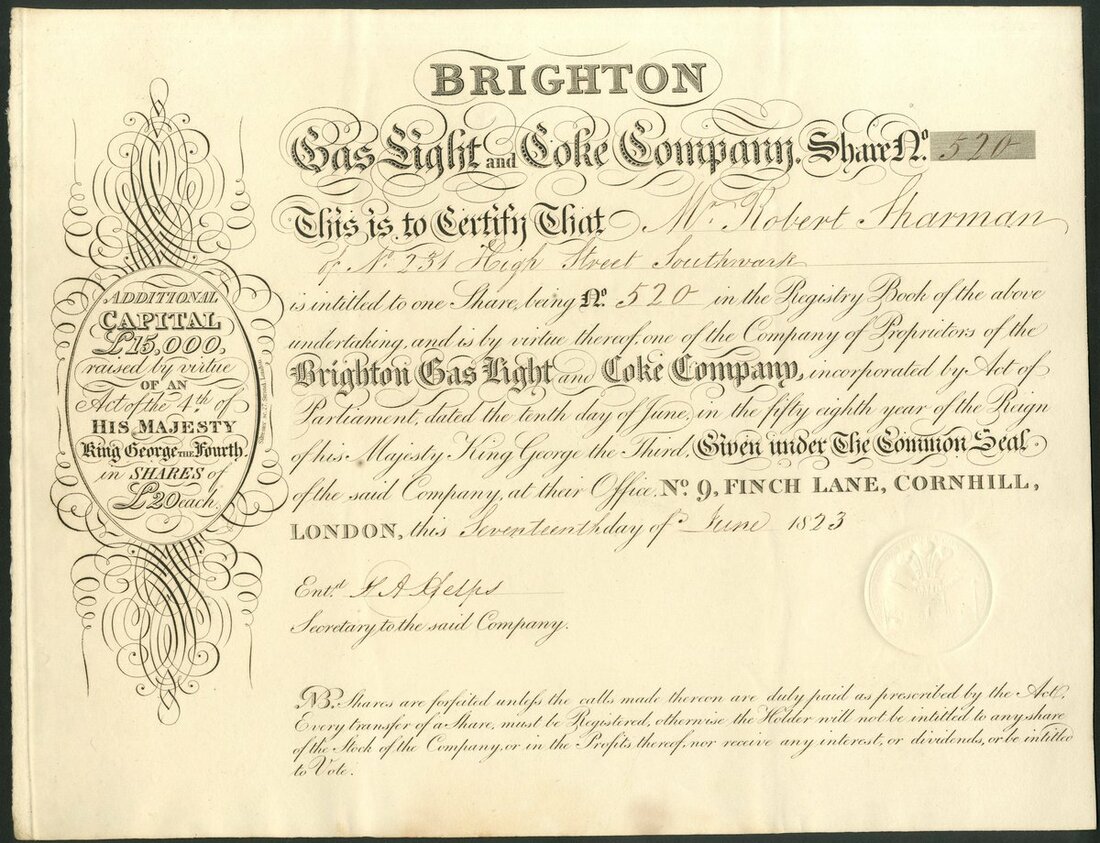 BRIGHTON
Gas Light and Coke Company. Share No. 520
This is to Certify That Mr Robert Sharman
of No 231 High Street Southwark
is intitled to one Share, being No. 520 in the Registry Book of the above
undertaking, and is by virtue thereof, one of the Company of Proprietors of the
Brighton Gas Light and Coke Company, incorporated by Act of
Parliament, dated the tenth day of June, in the fifty eighth year of the Reign
of his Majesty King George the Third, Given under The Common Seal
of the said Company, at their Office, No. 9, FINCH LANE, CORNHILL,
LONDON, this Seventeenth day of June 1823
Entd.
Secretary to the said Company.
NB. Shares are forfeited unleſs the calls made thereon are duly paid as prescribed by the Act.
Every transfer of a Share, must be Registered, otherwise the Holder will not be intitled to any share
of the Stock of the Company, or in the Profits thereof, nor receive any interest, or dividends, or be intitled
to Vote.
ADDITIONAL
CAPITAL
£15,000,
raised by virtue
OF AN
Act of the 4th. of
HIS MAJESTY
King George THE Fourth.
in SHARES of
£20 each.